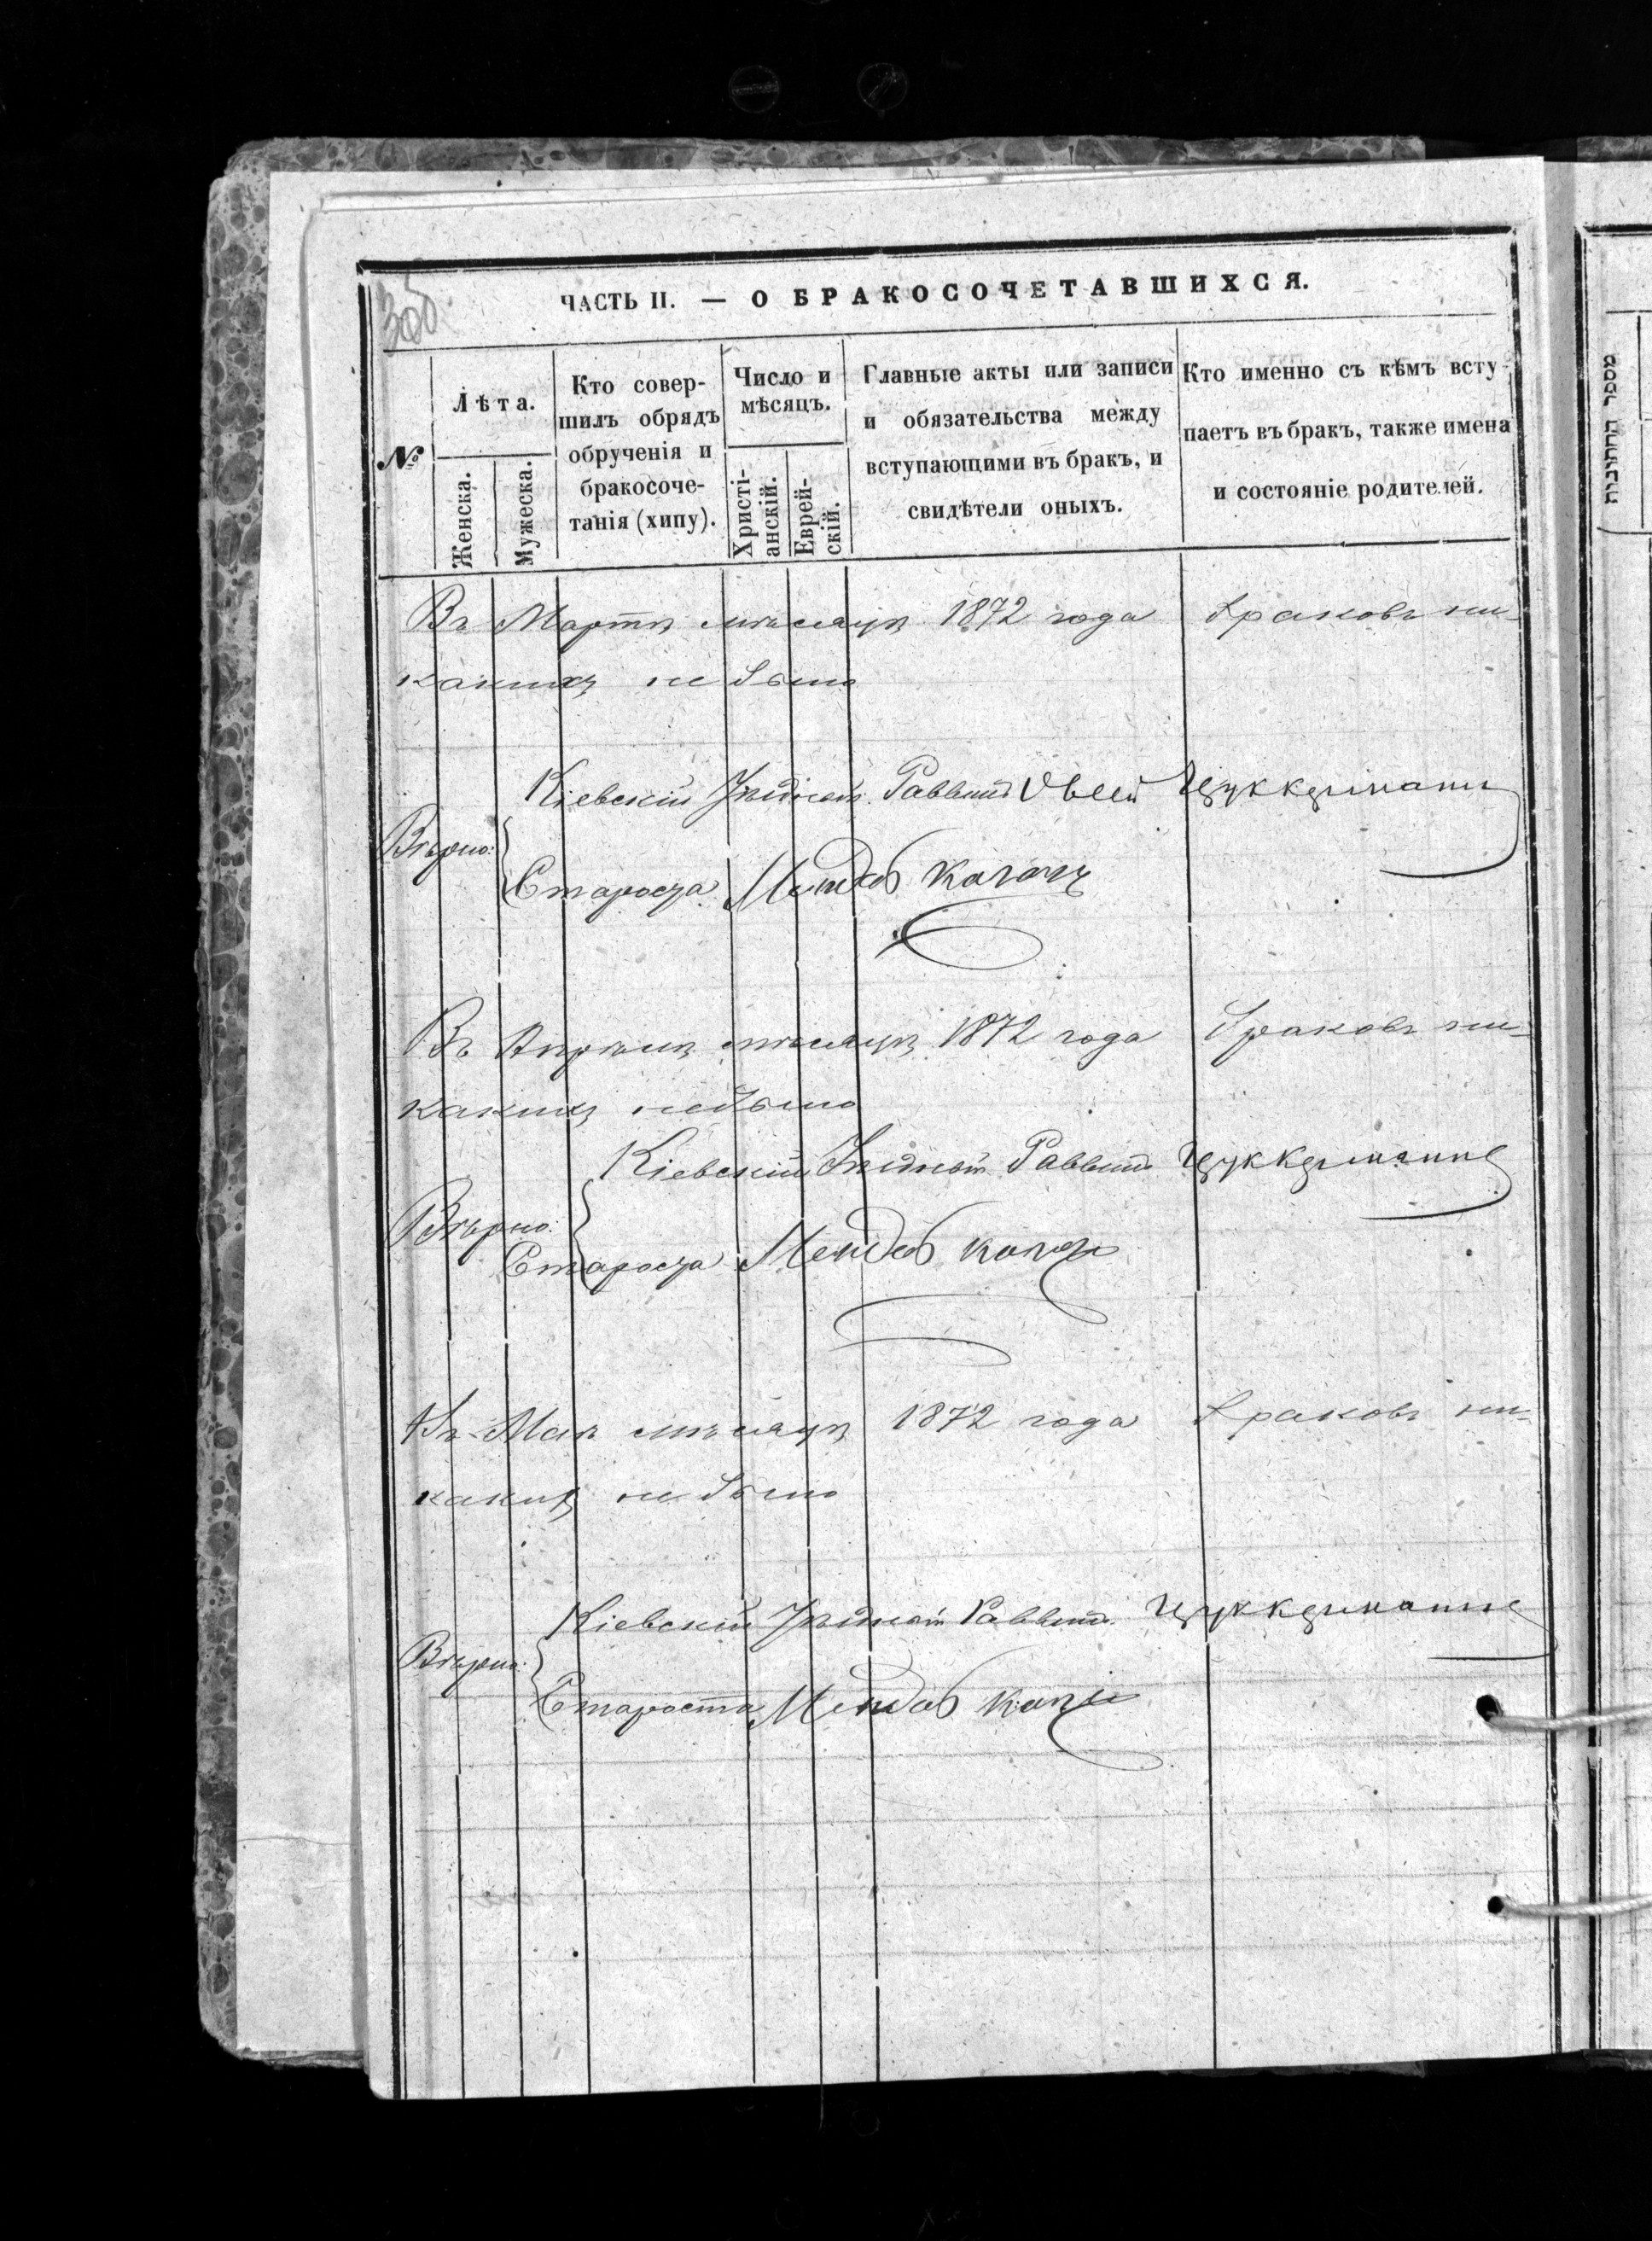 ЧАСТЬ II. — О БРАКОСОЧЕТАВШИХСЯ.
№
Лѣта.
Женска.
Мужеска.
Кто совер-
шилъ обрядъ
обрученія и
бракосоче-
танія (хипу).
Число и
мѣсяцъ.
Христі-
анскій.
Еврей-
скій.
Главные акты или записи
и обязательства между
вступающими въ бракъ, и
свидѣтели оныхъ.
Кто именно съ кѣмъ всту-
паетъ въ бракъ, также имена
и состояніе родителей.
מספר החתונות
Въ Мартѣ мѣсяцѣ 1872 года браковъ ни-
какихъ не было
Кіевскій Уѣздный Раввинъ Овсей Цуккерманъ
Вѣрно:
Староста Мендель
Въ Апрѣлѣ мѣсяцѣ 1872 года браковъ ни-
какихъ не было
Кіевскій Уѣздный Раввинъ Цуккерманъ
Вѣрно:
Староста Мендель
Въ Маѣ мѣсяцѣ 1872 года браковъ ни-
какихъ не было
Кіевскій Уѣздный Раввинъ Цуккерманъ
Вѣрно:
Староста Мендель